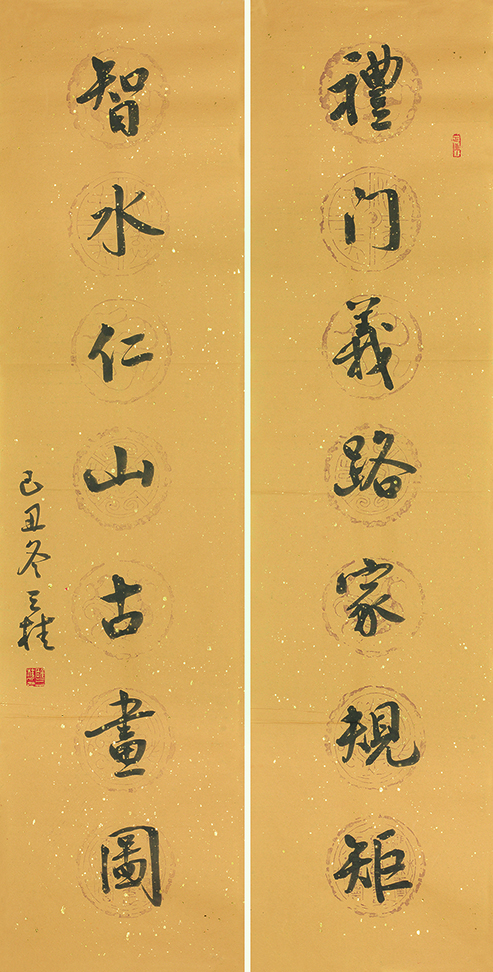 禮门義路家規矩
智水仁山古畫圖
己丑冬三桂